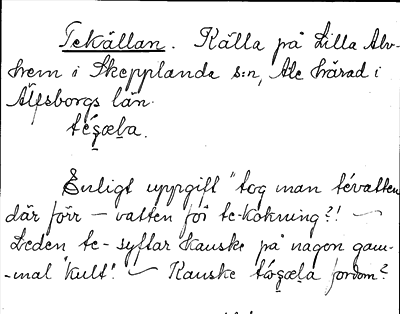 Tekällan. Källa på Lilla Alv-
hem i Skepplanda s:n, Ale härad i
Älfsborgs län.
téşæḷa.
Enligt uppgift "tog man tévatten
där förr – vatten för te-kokning?! —
Leden te- syftar kanske på någon gam-
-mal "kult". — Kanske şæḷa fordom?